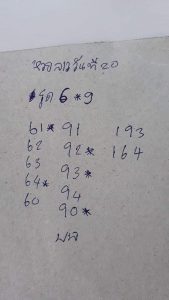 หวยลาววันที่ 20
ชุด 6 * 9
61 * 91 193
62 92 * 164
63 93 *
64 * 94
60 90 *